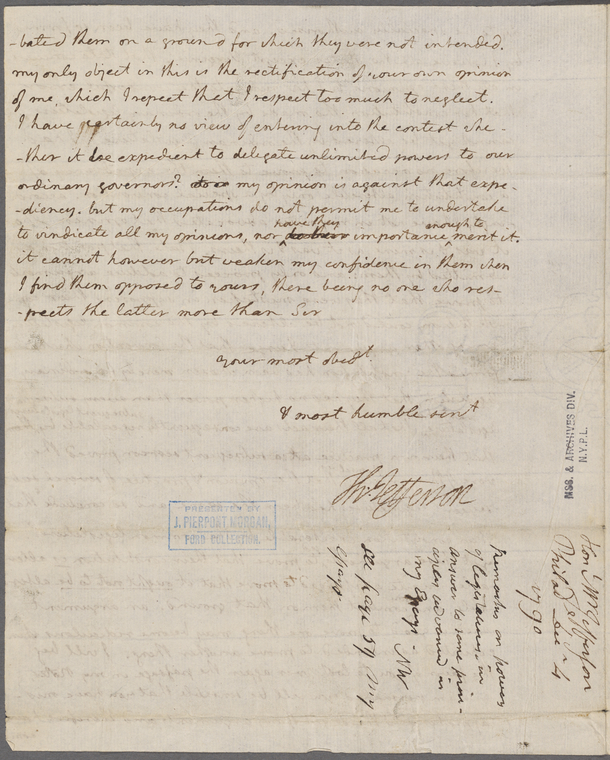 -bated them on a ground for which they were not intended.
my only object in this is the rectification of your own opinion
of me, which I repeat that I respect too much to neglect.
I have certainly no view of entering into the contest whe-
-ther it be expedient to delegate unlimited powers to our
ordinary governors? my opinion is against that expe-
-diency. but my occupations do not permit me to undertake
to vindicate all my opinions, nor have they importance enough to merit it.
it cannot however but weaken my confidence in them when
I find them opposed to yours, there being no one who res-
-pects the latter more than Sir
your most obedt
& most humble servt
Th: Jefferson
PRESENTED BY
J. PIERPONT MORGAN,
FORD COLLECTION.
MSS. & ARCHIVES DIV.
N.Y.P.L.
Hon! Mr. Jefferson
Philad. Dec. 4
1790
Remarks on powers
of legislatures, in
answer to some prin-
ciples, advanced in
my Essays. NW
see page 59 my
essays.